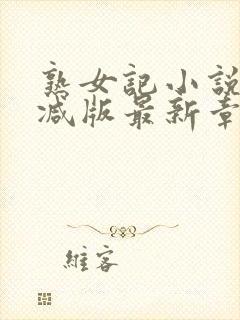 熟女記小說
減版最新章
維客